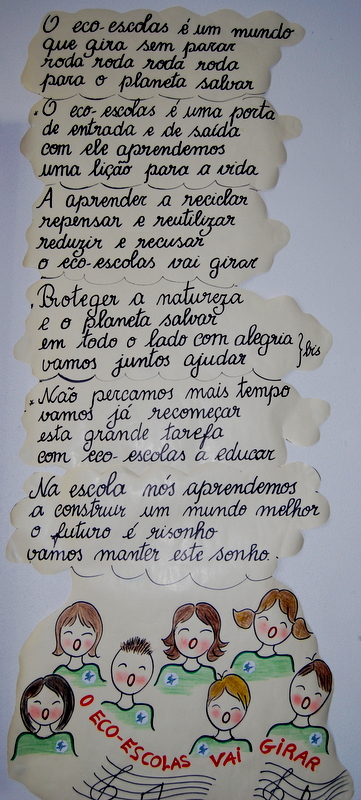 O eco-escolas é um mundo
que gira sem parar
roda roda roda roda
para o planeta salvar
O eco-escolas é uma porta
de entrada e de saída
com ele aprendemos
uma lição para a vida
A aprender a reciclar
repensar e reutilizar
reduzir e recusar
o eco-escolas vai girar
Proteger a natureza
e o planeta salvar
em todo o lado com alegria
vamos juntos ajudar } bis
Não percamos mais tempo
vamos já recomeçar
esta grande tarefa
com eco-escolas a educar
Na escola nós aprendemos
a construir um mundo melhor
o futuro é risonho
vamos manter este sonho.
O ECO-ESCOLAS VAI GIRAR